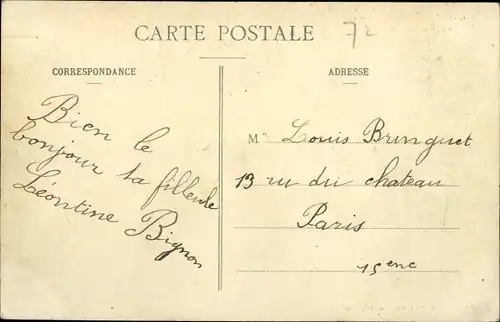 CARTE POSTALE
72
CORRESPONDANCE
ADRESSE
Bien le
bonjour ta filleule
Léontine Bignon
Mr Louis Bringuet
13 ru du chateau
Paris
15eme